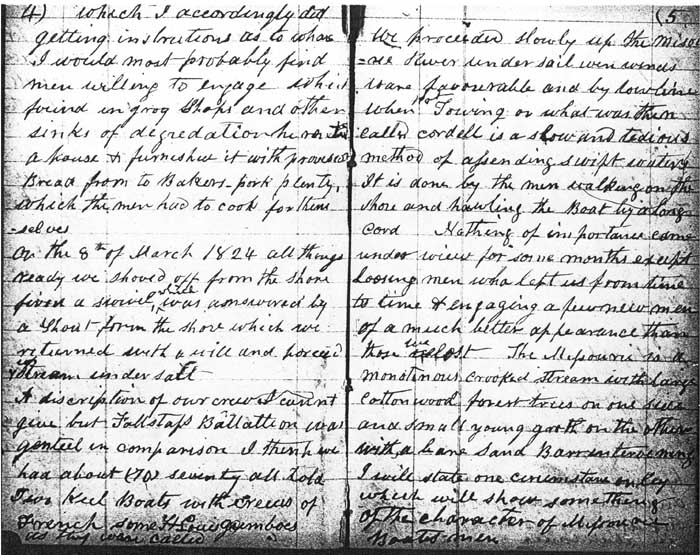 4) which I accordingly did
getting instructions as to whare
I would most probably find
men willing to engage which
found in grog Shops and other
sinks of degredation he rented
a house & furnished it with provisions
Bread from to Bakers- pork plenty,
which the men had to cook for them
-selves
On the 8th of March 1824 all things
ready we shoved off from the shore
fired a swivel which was answered by
a Shout form the shore which we
returned with a will and
up stream under sail
A discription of our crew I cannt
give but Fallstafs Battallion was
genteel in comparison I think we
had about (70) seventy all told
Two Keel Boats with crews of
French some St Louis gumboes
as they ware called
(5
We proceeded slowly up the Misou
=rie River under sail wen winds
ware favourable and by towline
when not Towing or what was then
called cordell is a slow and tedious
method of assending swift waters
It is done by the men walking on the
shore and hawling the Boat by a long
cord Nothing of importance came
under view for some months except
loosing men who left us from time
to time & engaging a few new men
of a much better appearance than
those we lost The Missourie is a
monotinous crooked stream with large
cottonwood forest trees on one side
and small young groth on the other
with a bare Sand Barr intervening
I will state one circumstance only
which will show something
of the character of Missourie
Boats men